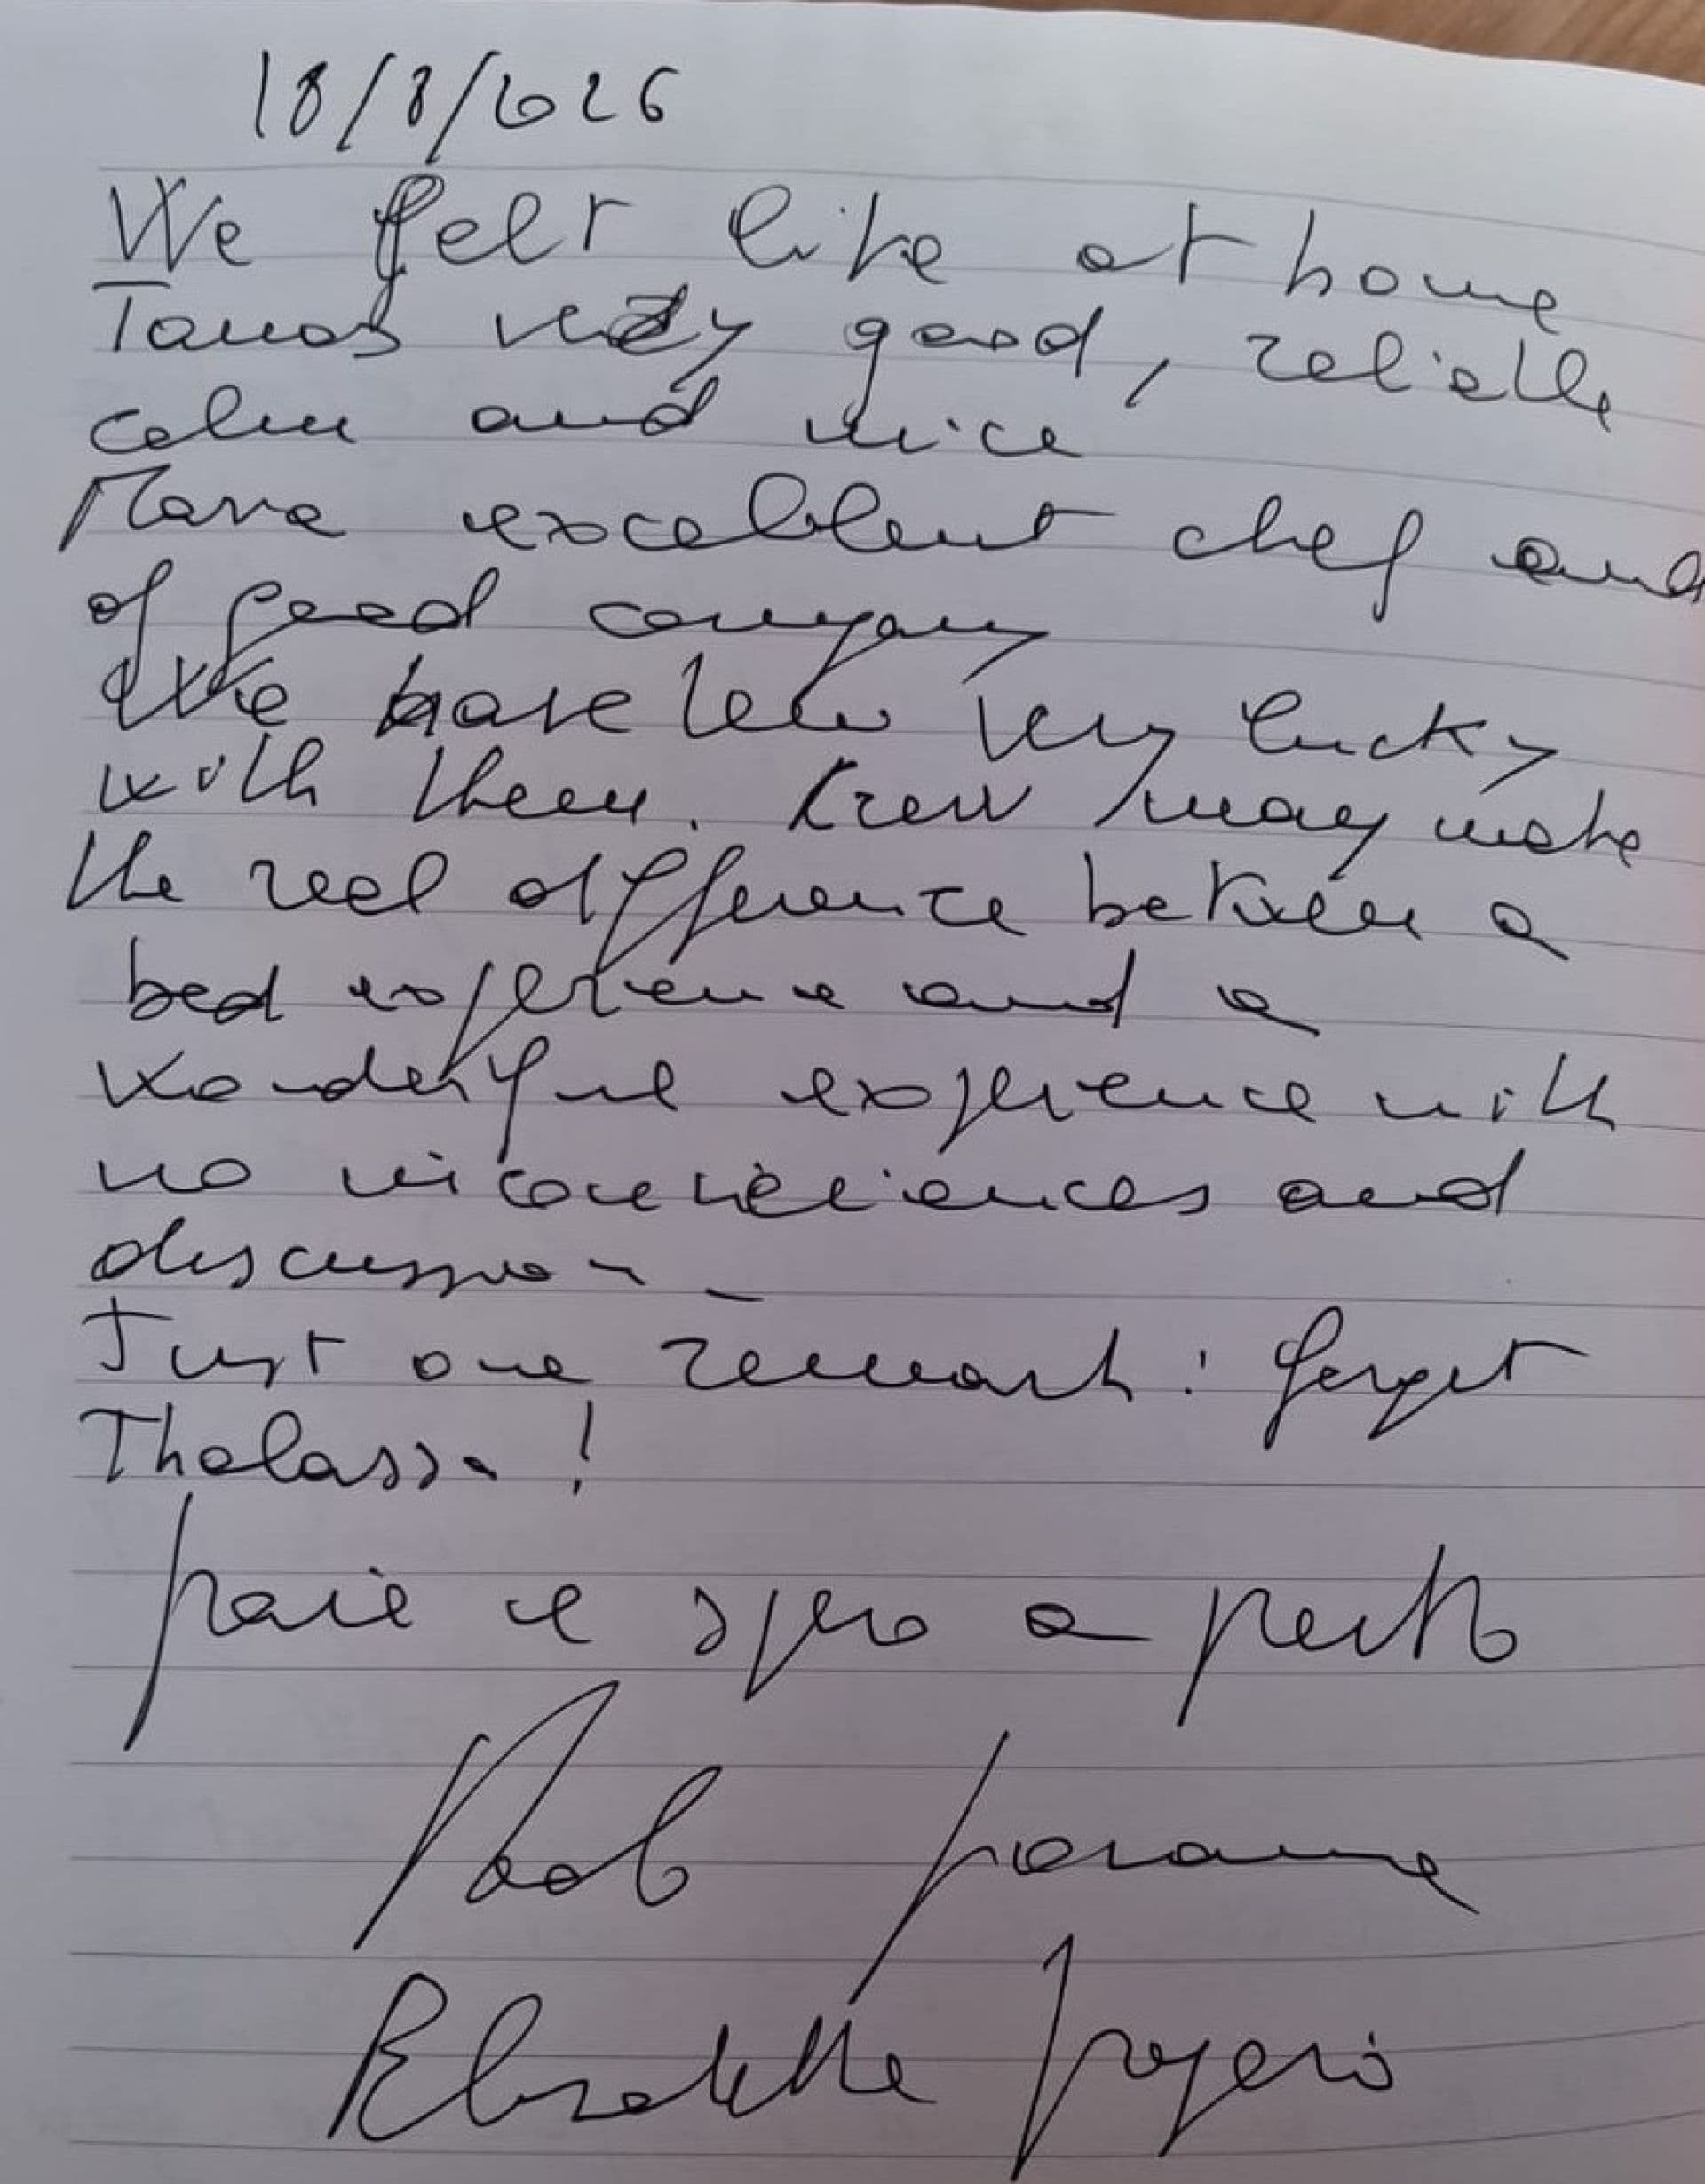 18/8/2026
We felt like at home
Tanos very good, reliable
calm and nice
Maria excellent chef and
of good company
We have been very lucky
with them. Crew may make
the real difference between a
bad experience and a
wonderful experience with
no inconveniences and
discussion
Just one remark: forget
Thalassa!
e spero a presto
Elisabetta